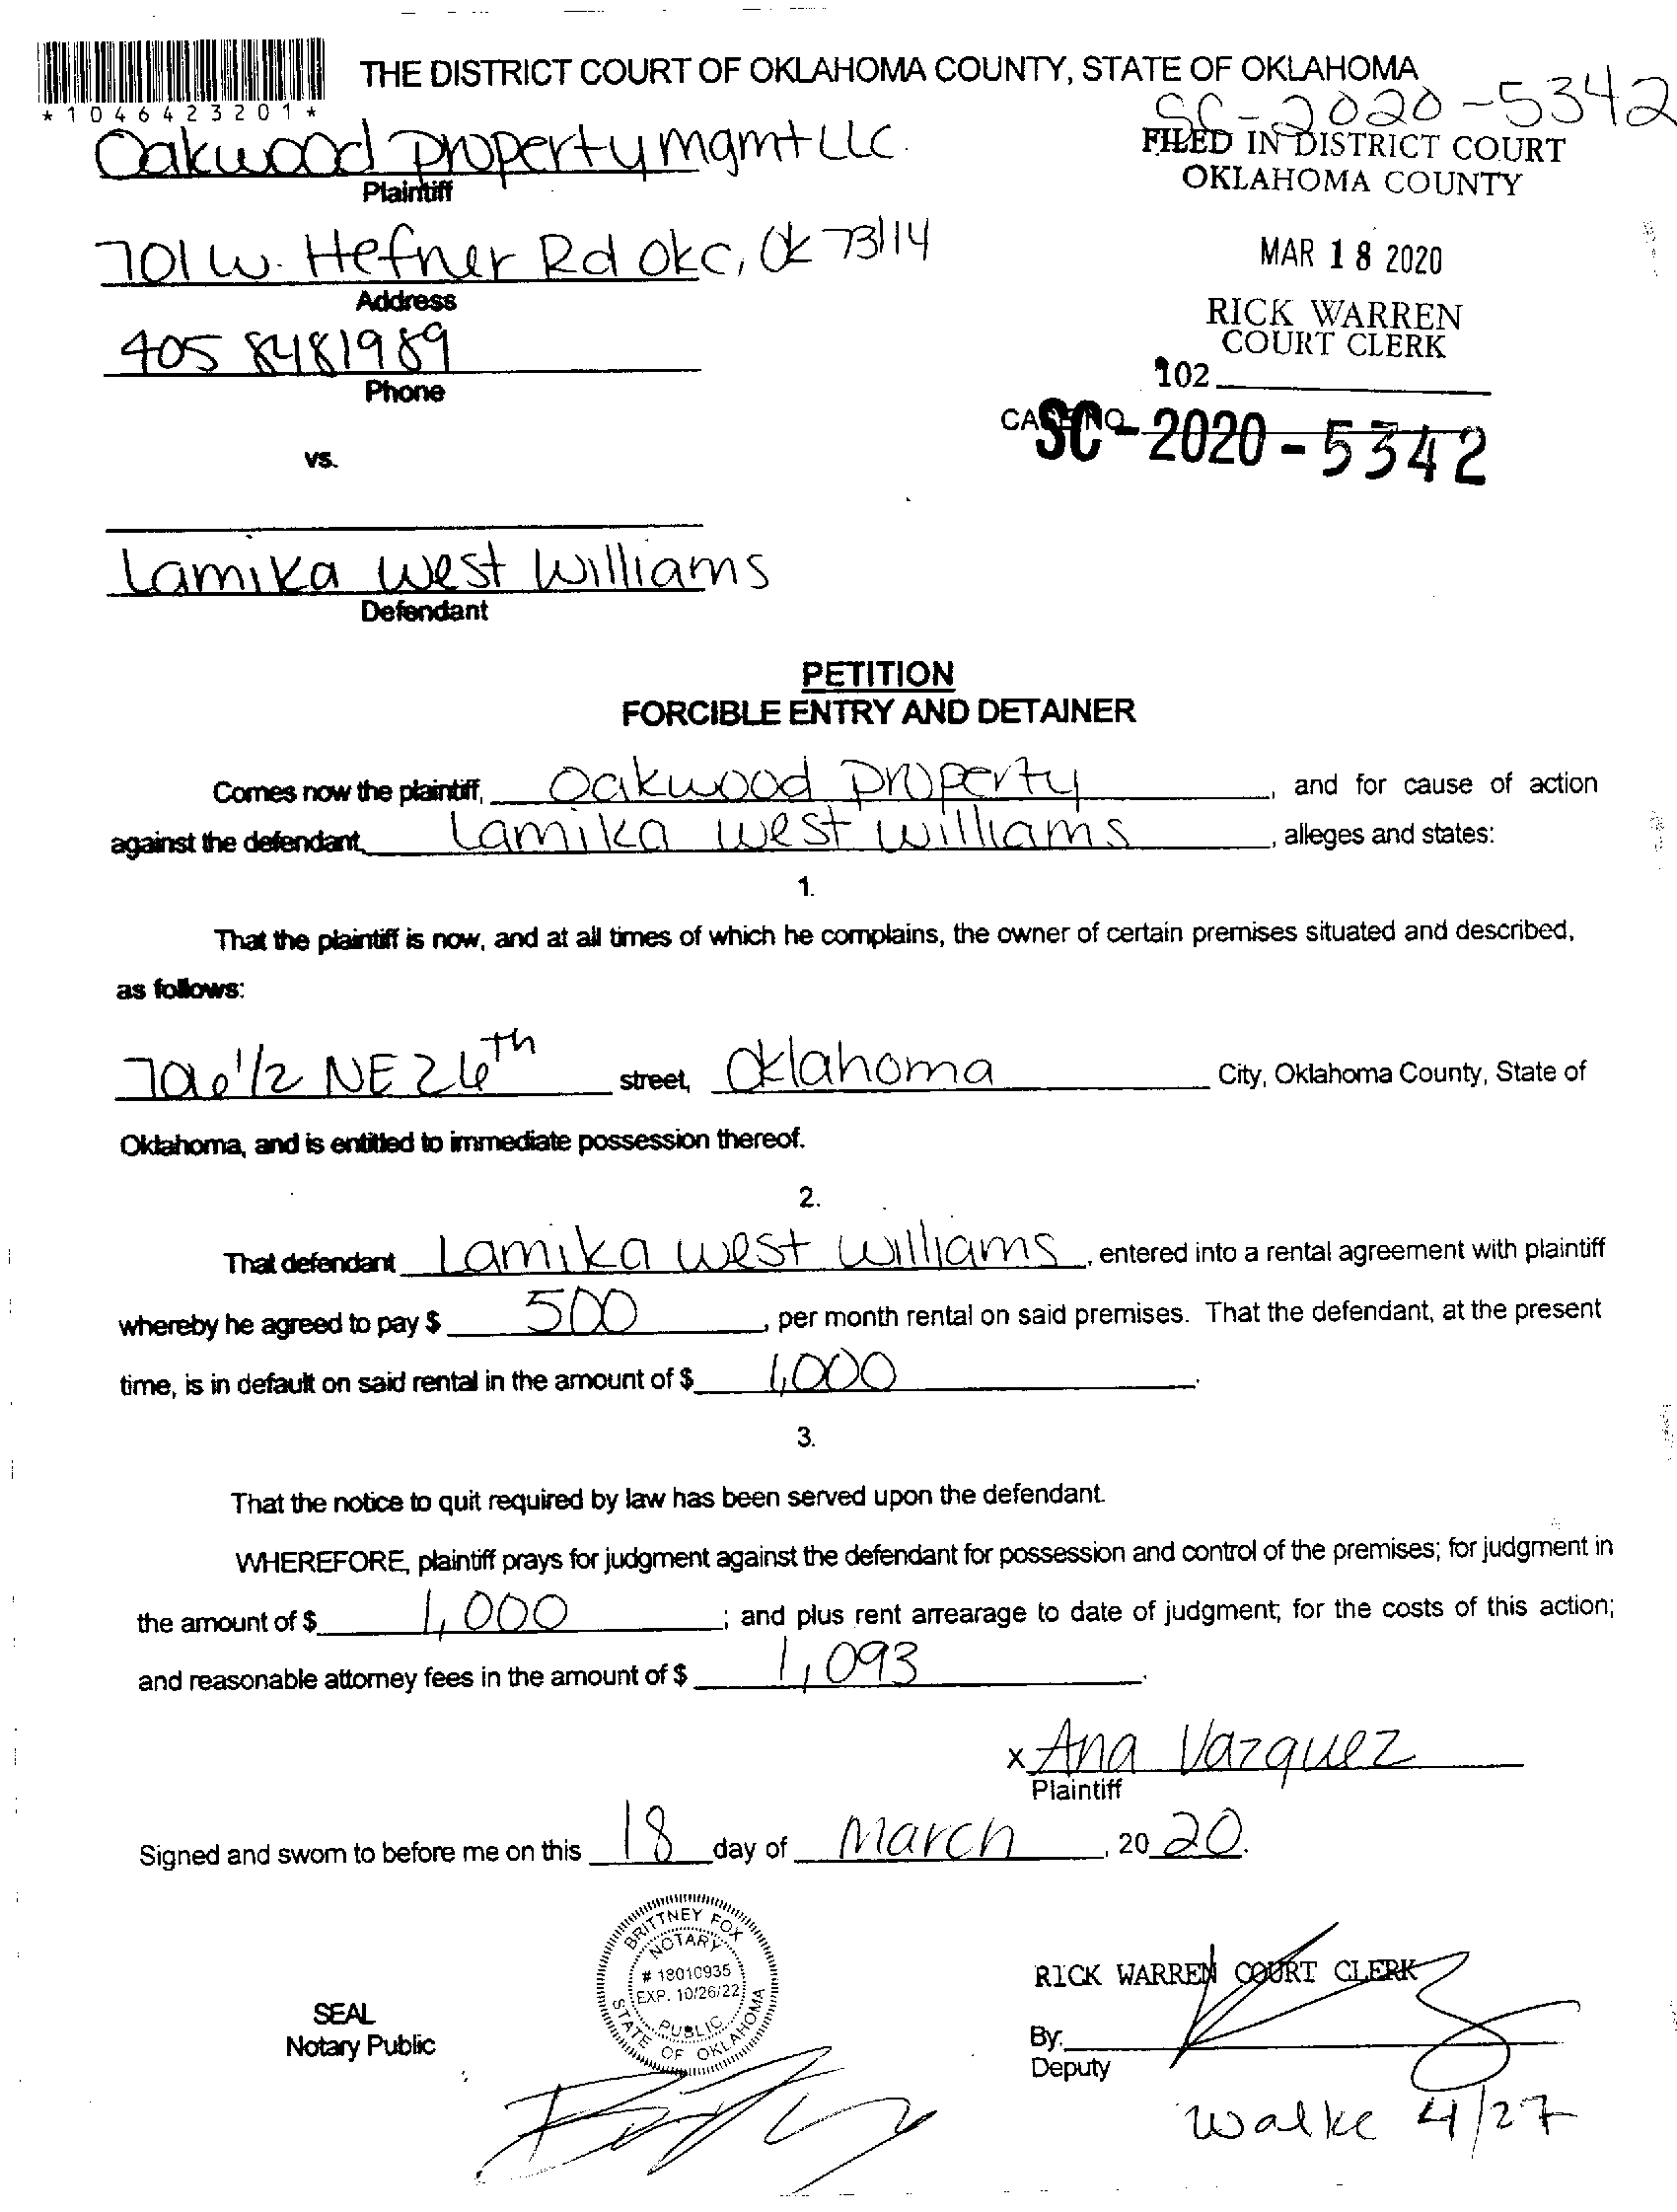 THE DISTRICT COURT OF OKLAHOMA COUNTY, STATE OF OKLAHOMA
*1046423201*
SC-2020-5342
Oakwood Property mgmt LLC.
Plaintiff
FILED IN DISTRICT COURT
OKLAHOMA COUNTY
701 W. Hefner Rd OKC, OK 73114
Address
MAR 18 2020
RICK WARREN
COURT CLERK
405 8481989
Phone
102
CASE NO. SC-2020-5342
vs.
Lamika West Williams
Defendant
PETITION
FORCIBLE ENTRY AND DETAINER
Comes now the plaintiff, Oakwood Property, and for cause of action
against the defendant, Lamika West Williams, alleges and states:
1.
That the plaintiff is now, and at all times of which he complains, the owner of certain premises situated and described,
as follows:
706 1/2 NE 26th street, Oklahoma City, Oklahoma County, State of
Oklahoma, and is entitled to immediate possession thereof.
2.
That defendant Lamika West Williams, entered into a rental agreement with plaintiff
whereby he agreed to pay $ 500, per month rental on said premises. That the defendant, at the present
time, is in default on said rental in the amount of $ 1,000.
3.
That the notice to quit required by law has been served upon the defendant.
WHEREFORE, plaintiff prays for judgment against the defendant for possession and control of the premises; for judgment in
the amount of $ 1,000; and plus rent arrearage to date of judgment; for the costs of this action;
and reasonable attorney fees in the amount of $ 1,093.
x Ana Vazquez
Plaintiff
Signed and sworn to before me on this 18 day of March, 2020.
BRITTNEY FOX
NOTARY
# 18010935
EXP. 10/26/22
PUBLIC
STATE OF OKLAHOMA
RICK WARREN COURT CLERK
SEAL
Notary Public
By:
Deputy
Walke 4/27